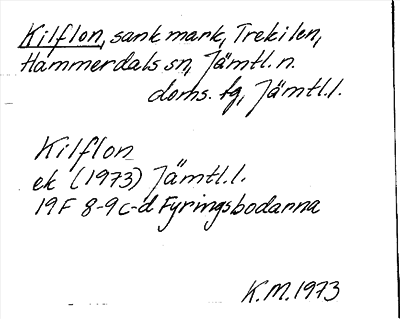 Kilflon, sank mark, Trekilen,
Hammerdals sn, Jämtl. n.
doms. fg, Jämtl.l.
Kilflon
ek (1973) Jämtl.l.
19F 8-9c-d Fyringsbodarna
K.M. 1973